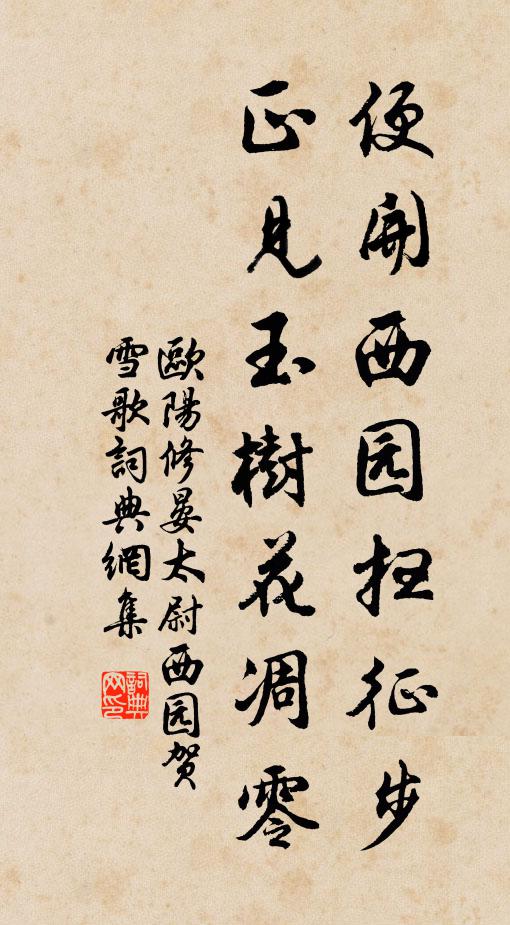 便開西园扫征步
正見玉樹花凋零
歐陽修晏太尉西园贺
雪歌詞典網集
詞典网印